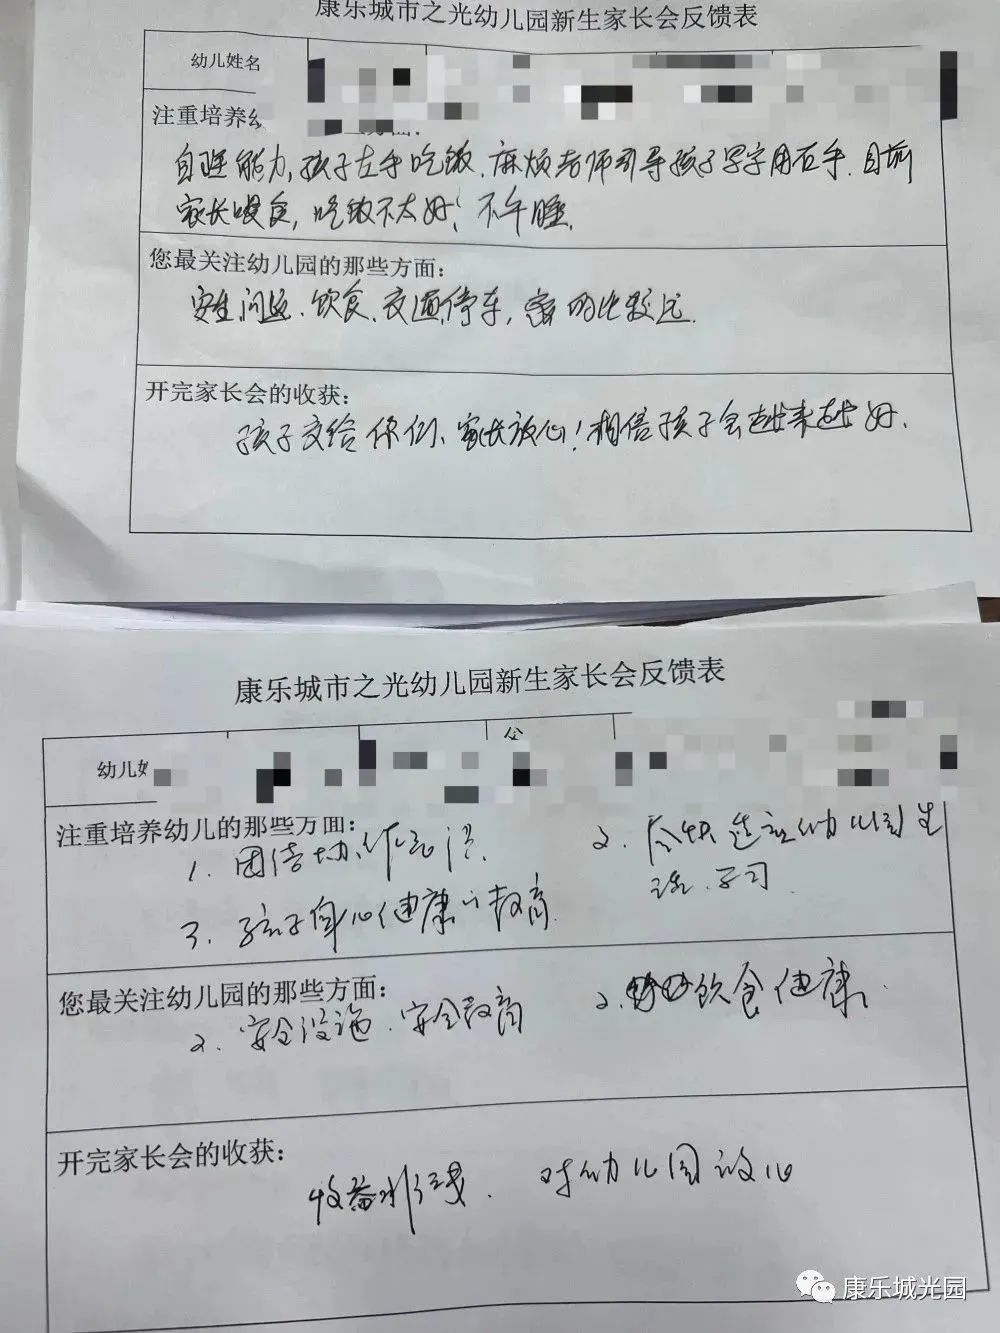 康乐城市之光幼儿园新生家长会反馈表
幼儿姓名
注重培养幼
自理能力,孩子左手吃饭,麻烦老师引导孩子写字用右手.目前
家长喂食,吃饭不太好!不午睡.
您最关注幼儿园的那些方面:
安全问题、饮食、交通停车,离的比较远.
开完家长会的收获:
孩子交给你们、家长放心!相信孩子会越来越好.
康乐城市之光幼儿园新生家长会反馈表
公
幼儿姓
注重培养幼儿的那些方面:
1. 团结协作意识. 2. 尽快适应幼儿园生
活、学习.
3. 孩子身心健康的教育.
您最关注幼儿园的那些方面:
2. 安全设施、安全教育 2. 饮食健康.
开完家长会的收获:
收益 对幼儿园放心
康乐城光园